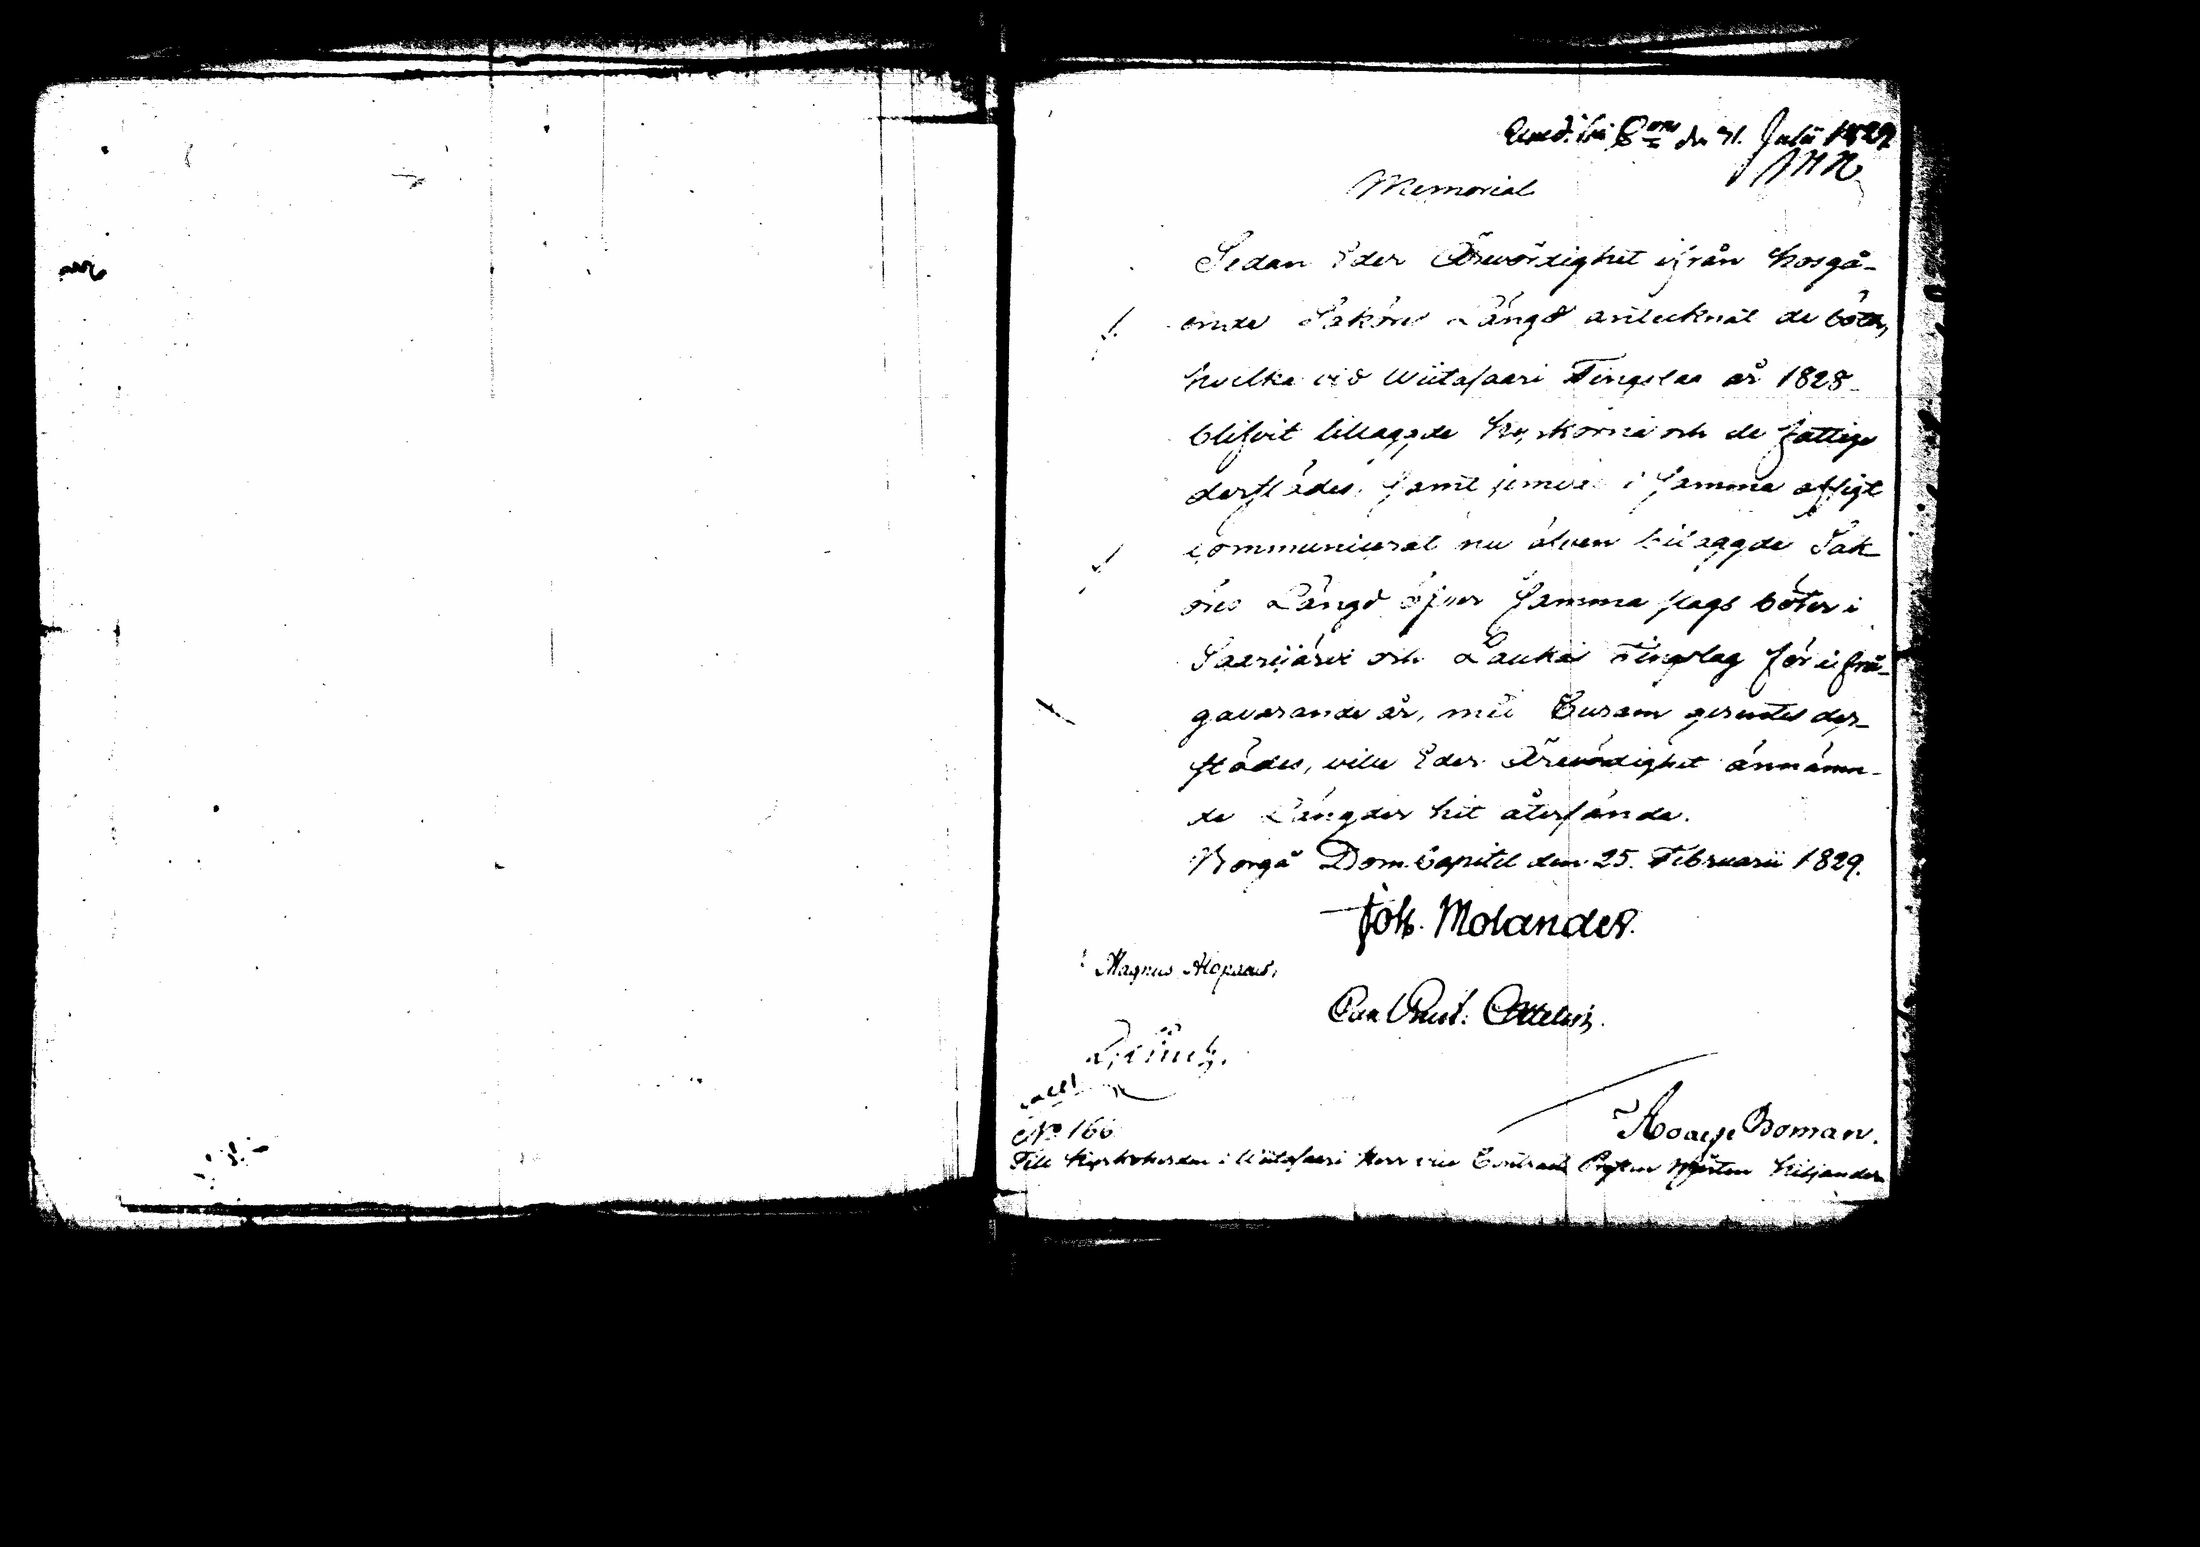 den 31. Julii 1829
Memorial
Sedan Eder Ärevördighet ifrån hosgå-
ende Saköres Längd antecknat de böter,
hvilka vid Wiitasaari Tingslag år 1828
blifvit tillagde kyrkorna och de fattige
derstädes, samt jemväl i samma afsigt
communicerat nu äfven bilaggde Sak
öres Längd öfver samma slags böter i
Saarijärvi och Laukas Tingslag för ifrå-
gavarande år, med Curam gerentes der-
städes, wille Eder Ärevördighet ännämn-
de Längder hit återsända.
Borgå Dom Capitel den 25. Februarii 1829.
Joh. Molander.
Magnus Alopaeus.
Carl Ottelin.
Boman.
No 166
Till Kyrkoherden i Wiitasaari Herr vice Contracts Prosten Mårten Hiljander